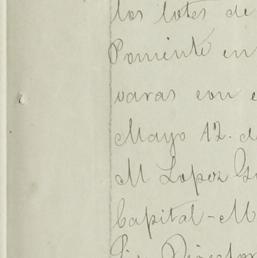 los lotes de
Poniente en
varas con e
Mayo 12. d
M Lopez G
Capital - M
Director